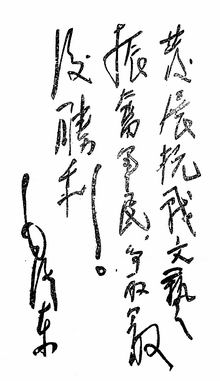 发展抗战文艺,
振奋军民,争取最
后胜利!。
毛泽东